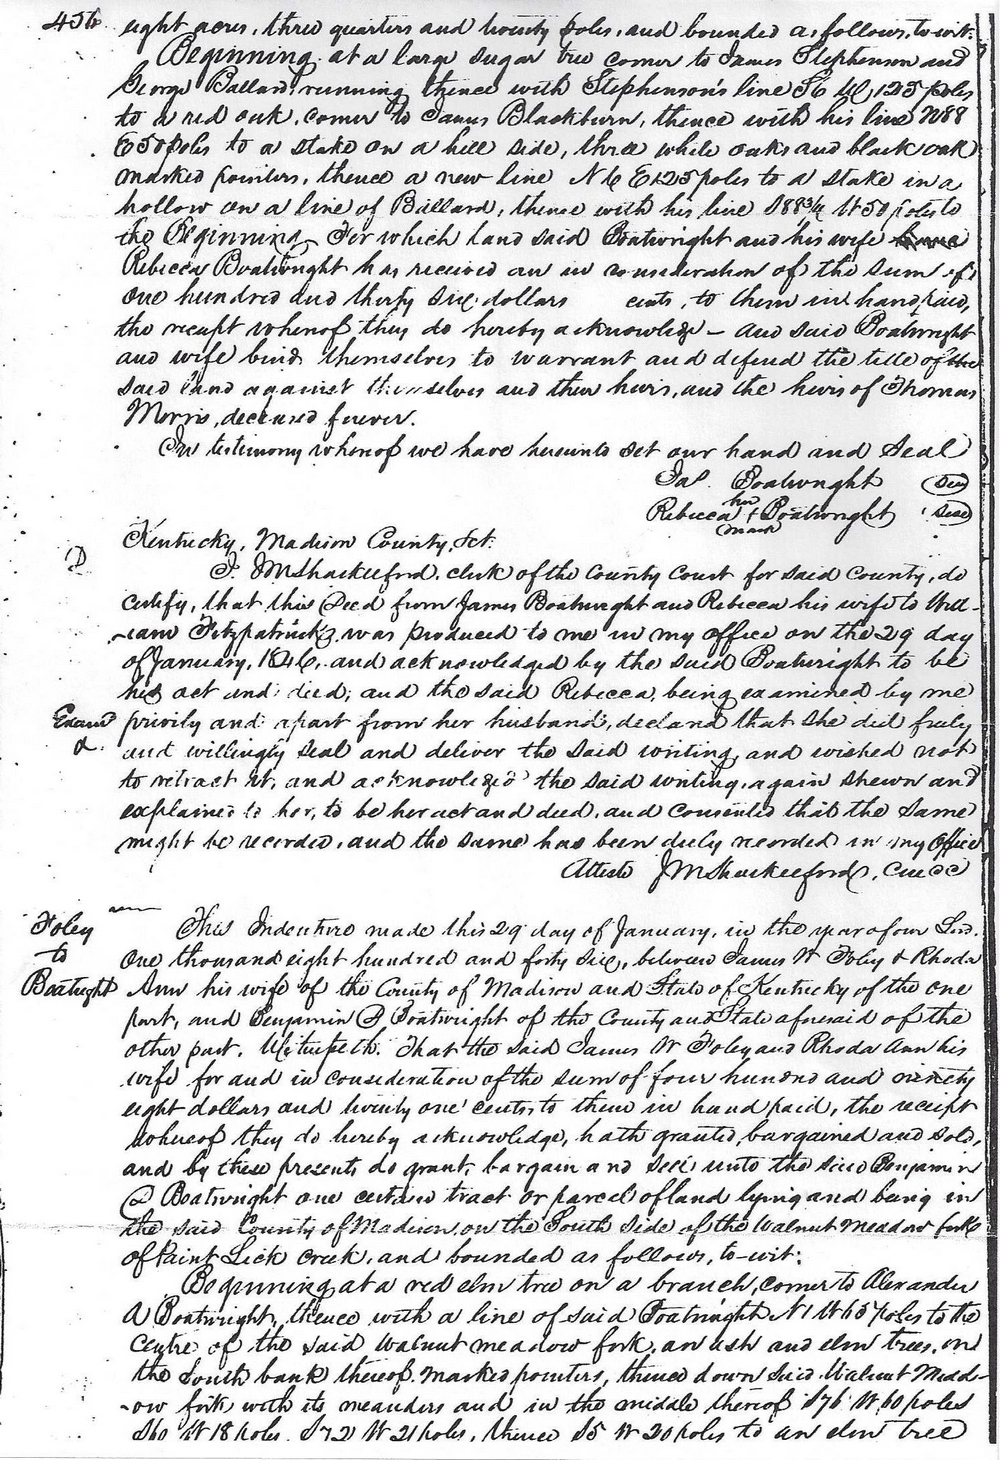 456 eight acres, three quarters and twenty poles, and bounded as follows, to wit:
Beginning at a large sugar tree corner to James Stephenson and
George Ballard, running thence with Stephenson's line S6 W 125 poles
to a red oak, corner to James Blackburn, thence with his line N88
E50 poles to a stake on a hill side, three while oaks and black oak
marked pointers, thence a new line N6 E125 poles to a stake in a
hollow on a line of Ballard, thence with his line S88¾ W50 poles to
the Beginning. For which land said Boatwright and his wife have
Rebecca Boatwright has received an in consideration of the sum of
one hundred and thirty six dollars cents, to them in hand paid,
the receipt whereof they do hereby acknowledge – and said Boatwright
and wife bind themselves to warrant and defend the title of the
said land against themselves and their heirs, and the heirs of Thomas
Morris, deceased forever.
In testimony whereof we have hereunto set our hand and Seal
Jas. Boatwright Seal
Rebecca her + mark Boatwright Seal
Kentucky, Madison County, Sct.
D
I. JMShackelford, clerk of the County Court for said County, do
certify, that this Deed from James Boatwright and Rebecca his wife to Will-
-iam Fitzpatrick, was produced to me in my office on the 29 day
of January, 1846, and acknowledged by the said Boatwright to be
his act and deed; and the said Rebecca, being examined by me
Examd privily and apart from her husband, declared that she did freely
and willingly seal and deliver the said writing, and wished not
to retract it, and acknowledged the said writing, again shewn and
explained to her, to be her act and deed, and consented that the same
might be recorded, and the same has been duly recorded in my office
Atteste JMShackelford, CMCC
Foley
to
Boatwright
This Indenture made this 29 day of January, in the year of our Lord.
one thousand eight hundred and forty six, between James W Foley & Rhoda
Ann his wife of the County of Madison and State of Kentucky of the one
part, and Benjamin D Boatwright of the County and State aforesaid of the
other part. Witnesseth. That the said James W Foley and Rhoda Ann his
wife for and in consideration of the sum of four hundred and ninety
eight dollars and twenty one cents, to them in hand paid, the receipt
whereof they do hereby acknowledge, hath granted, bargained and sold,
and by these presents do grant, bargain and sell unto the said Benjamin
D Boatwright one certain tract or parcel of land lying and being in
the said County of Madison on the South side of the Walnut Meadow fork
of Paint Lick creek, and bounded as follows, to-wit:
Beginning at a red elm tree on a branch, corner to Alexander
A Boatwright, thence with a line of said Boatwright N1 W65 poles to the
centre of the said Walnut meadow fork, an ash and elm trees, on
the South bank thereof marked pointers, thence down said Walnut Mead-
-ow fork with its meanders and in the middle thereof S76 W60 poles
S60 W18 poles. S72 W21 poles, thence S5 W20 poles to an elm tree